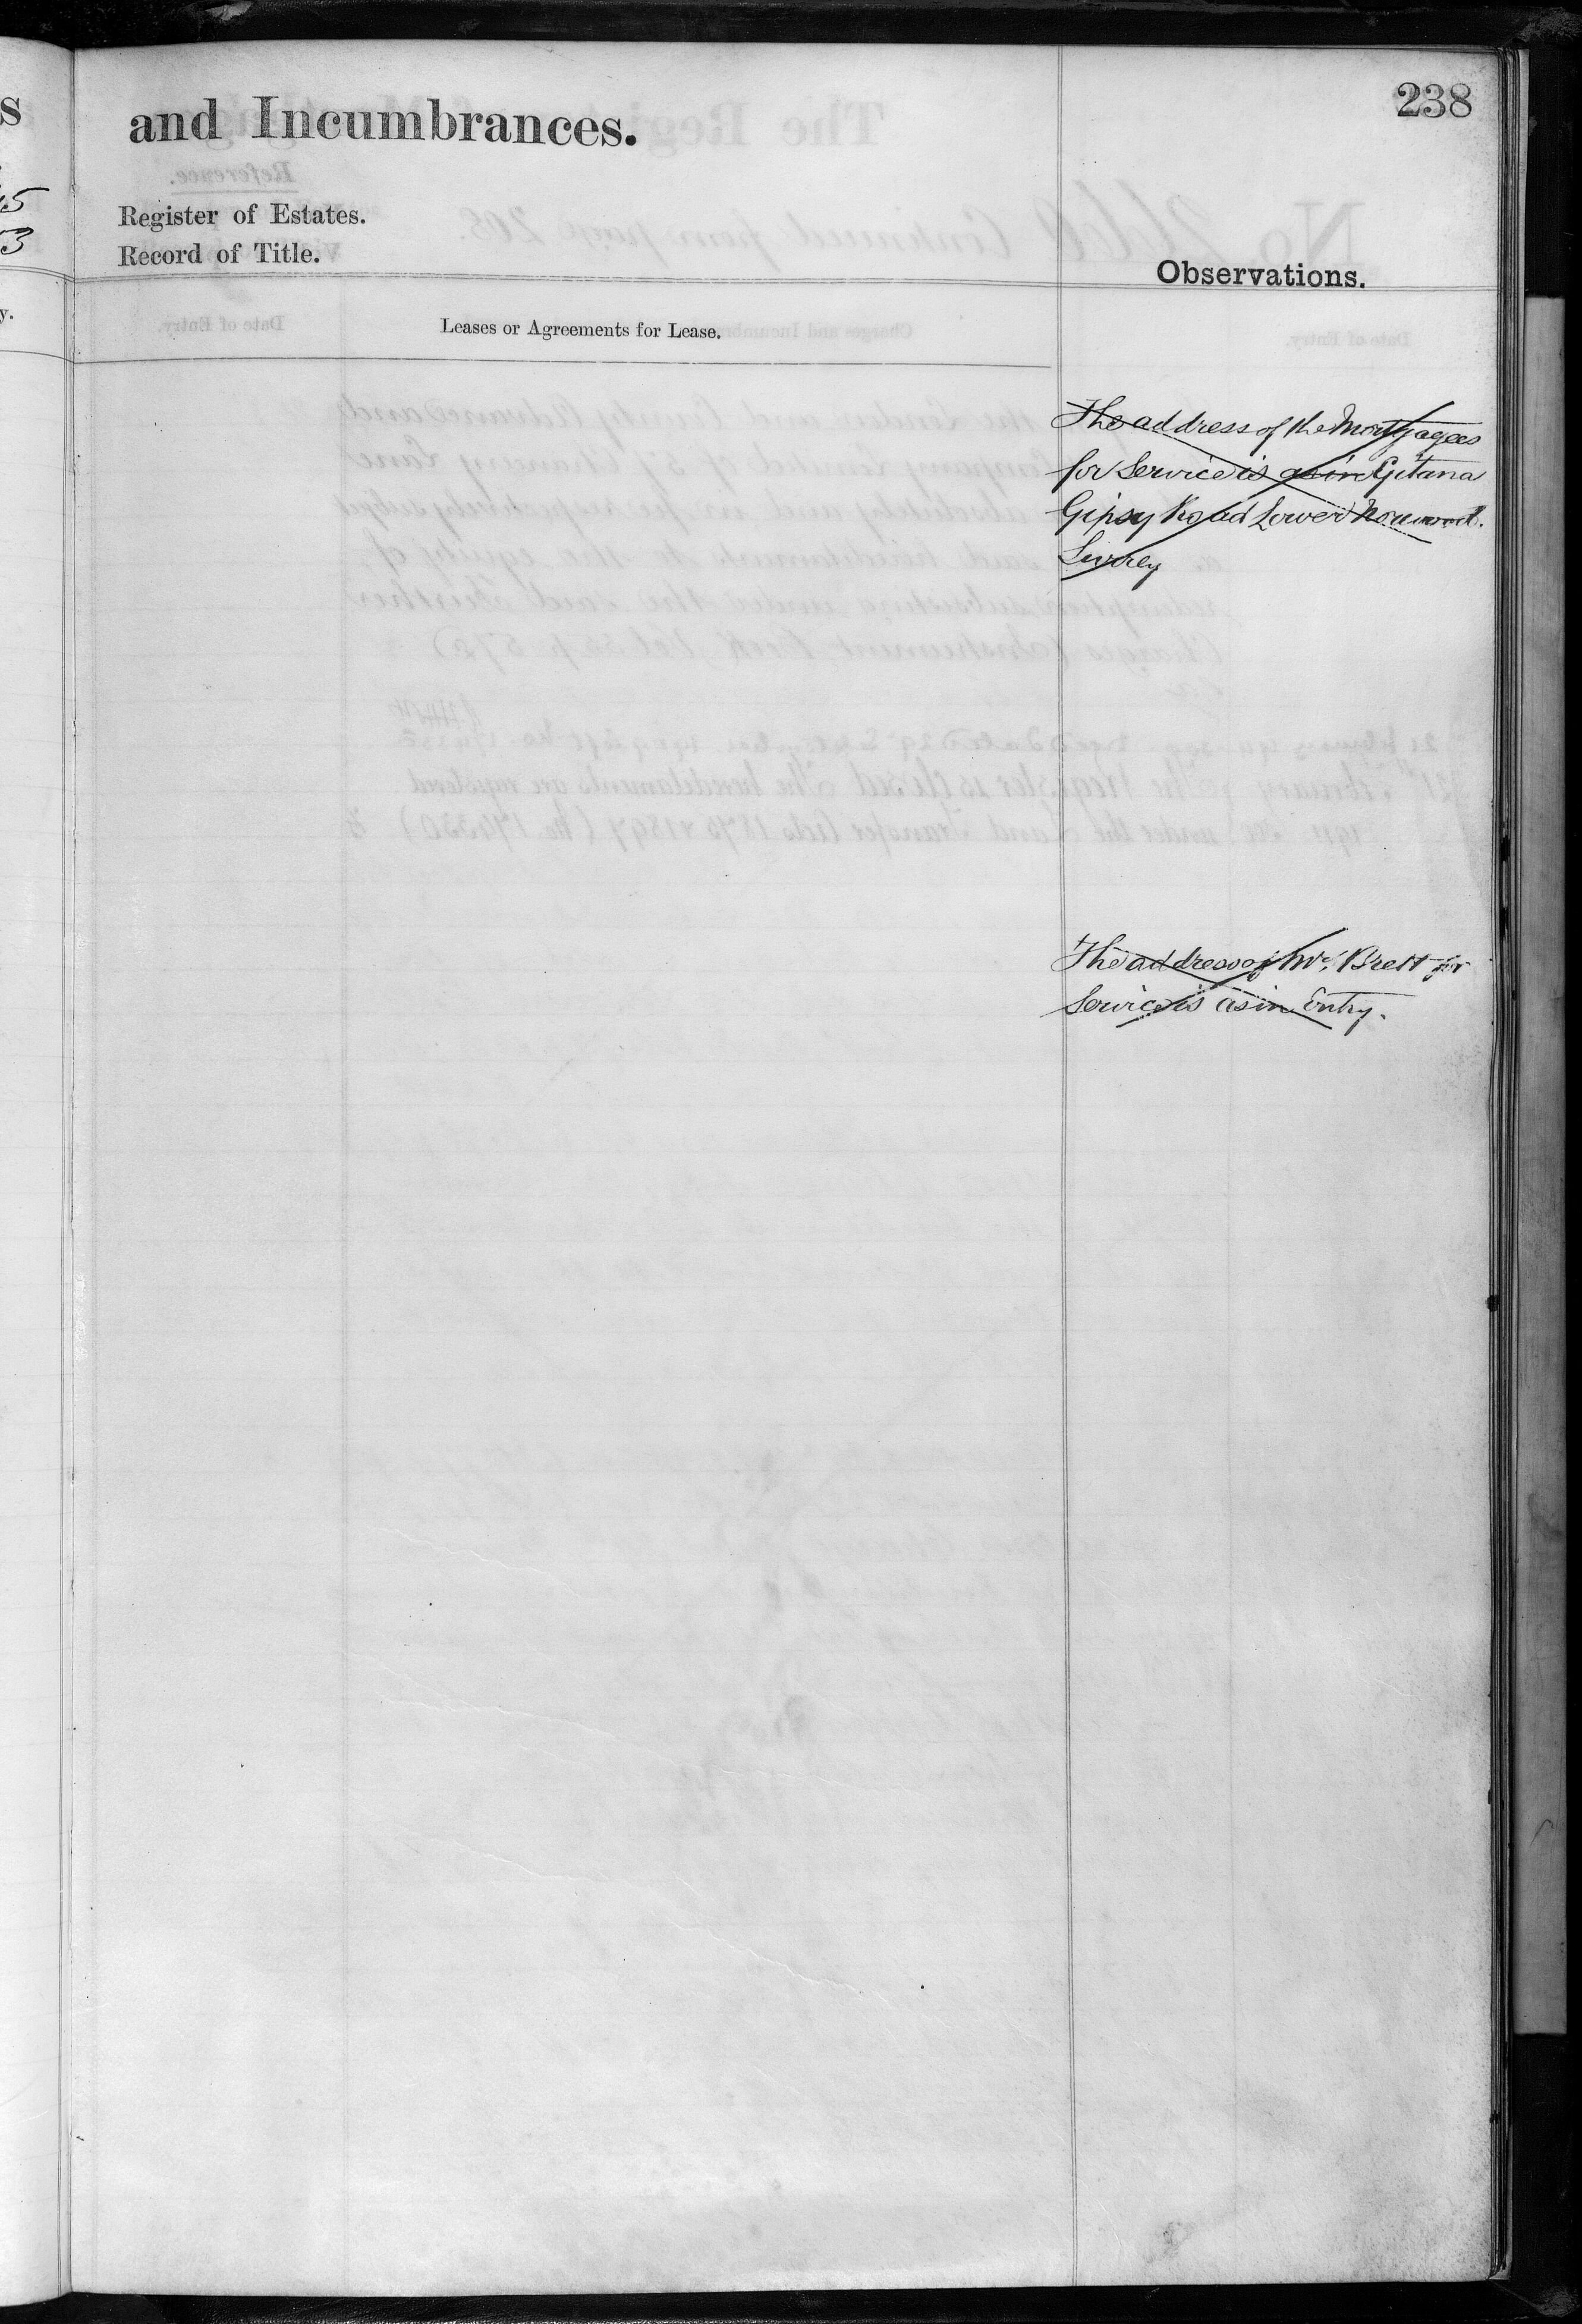 238
and Incumbrances.
Register of Estates.
Record of Title.
Observations.
Leases or Agreements for Lease.
The address of the Mortgagees
for Service is as in Gitana
Gipsy Road Lower Norwood.
Surrey
The address of Mr. Brett for
Service is as in Entry.